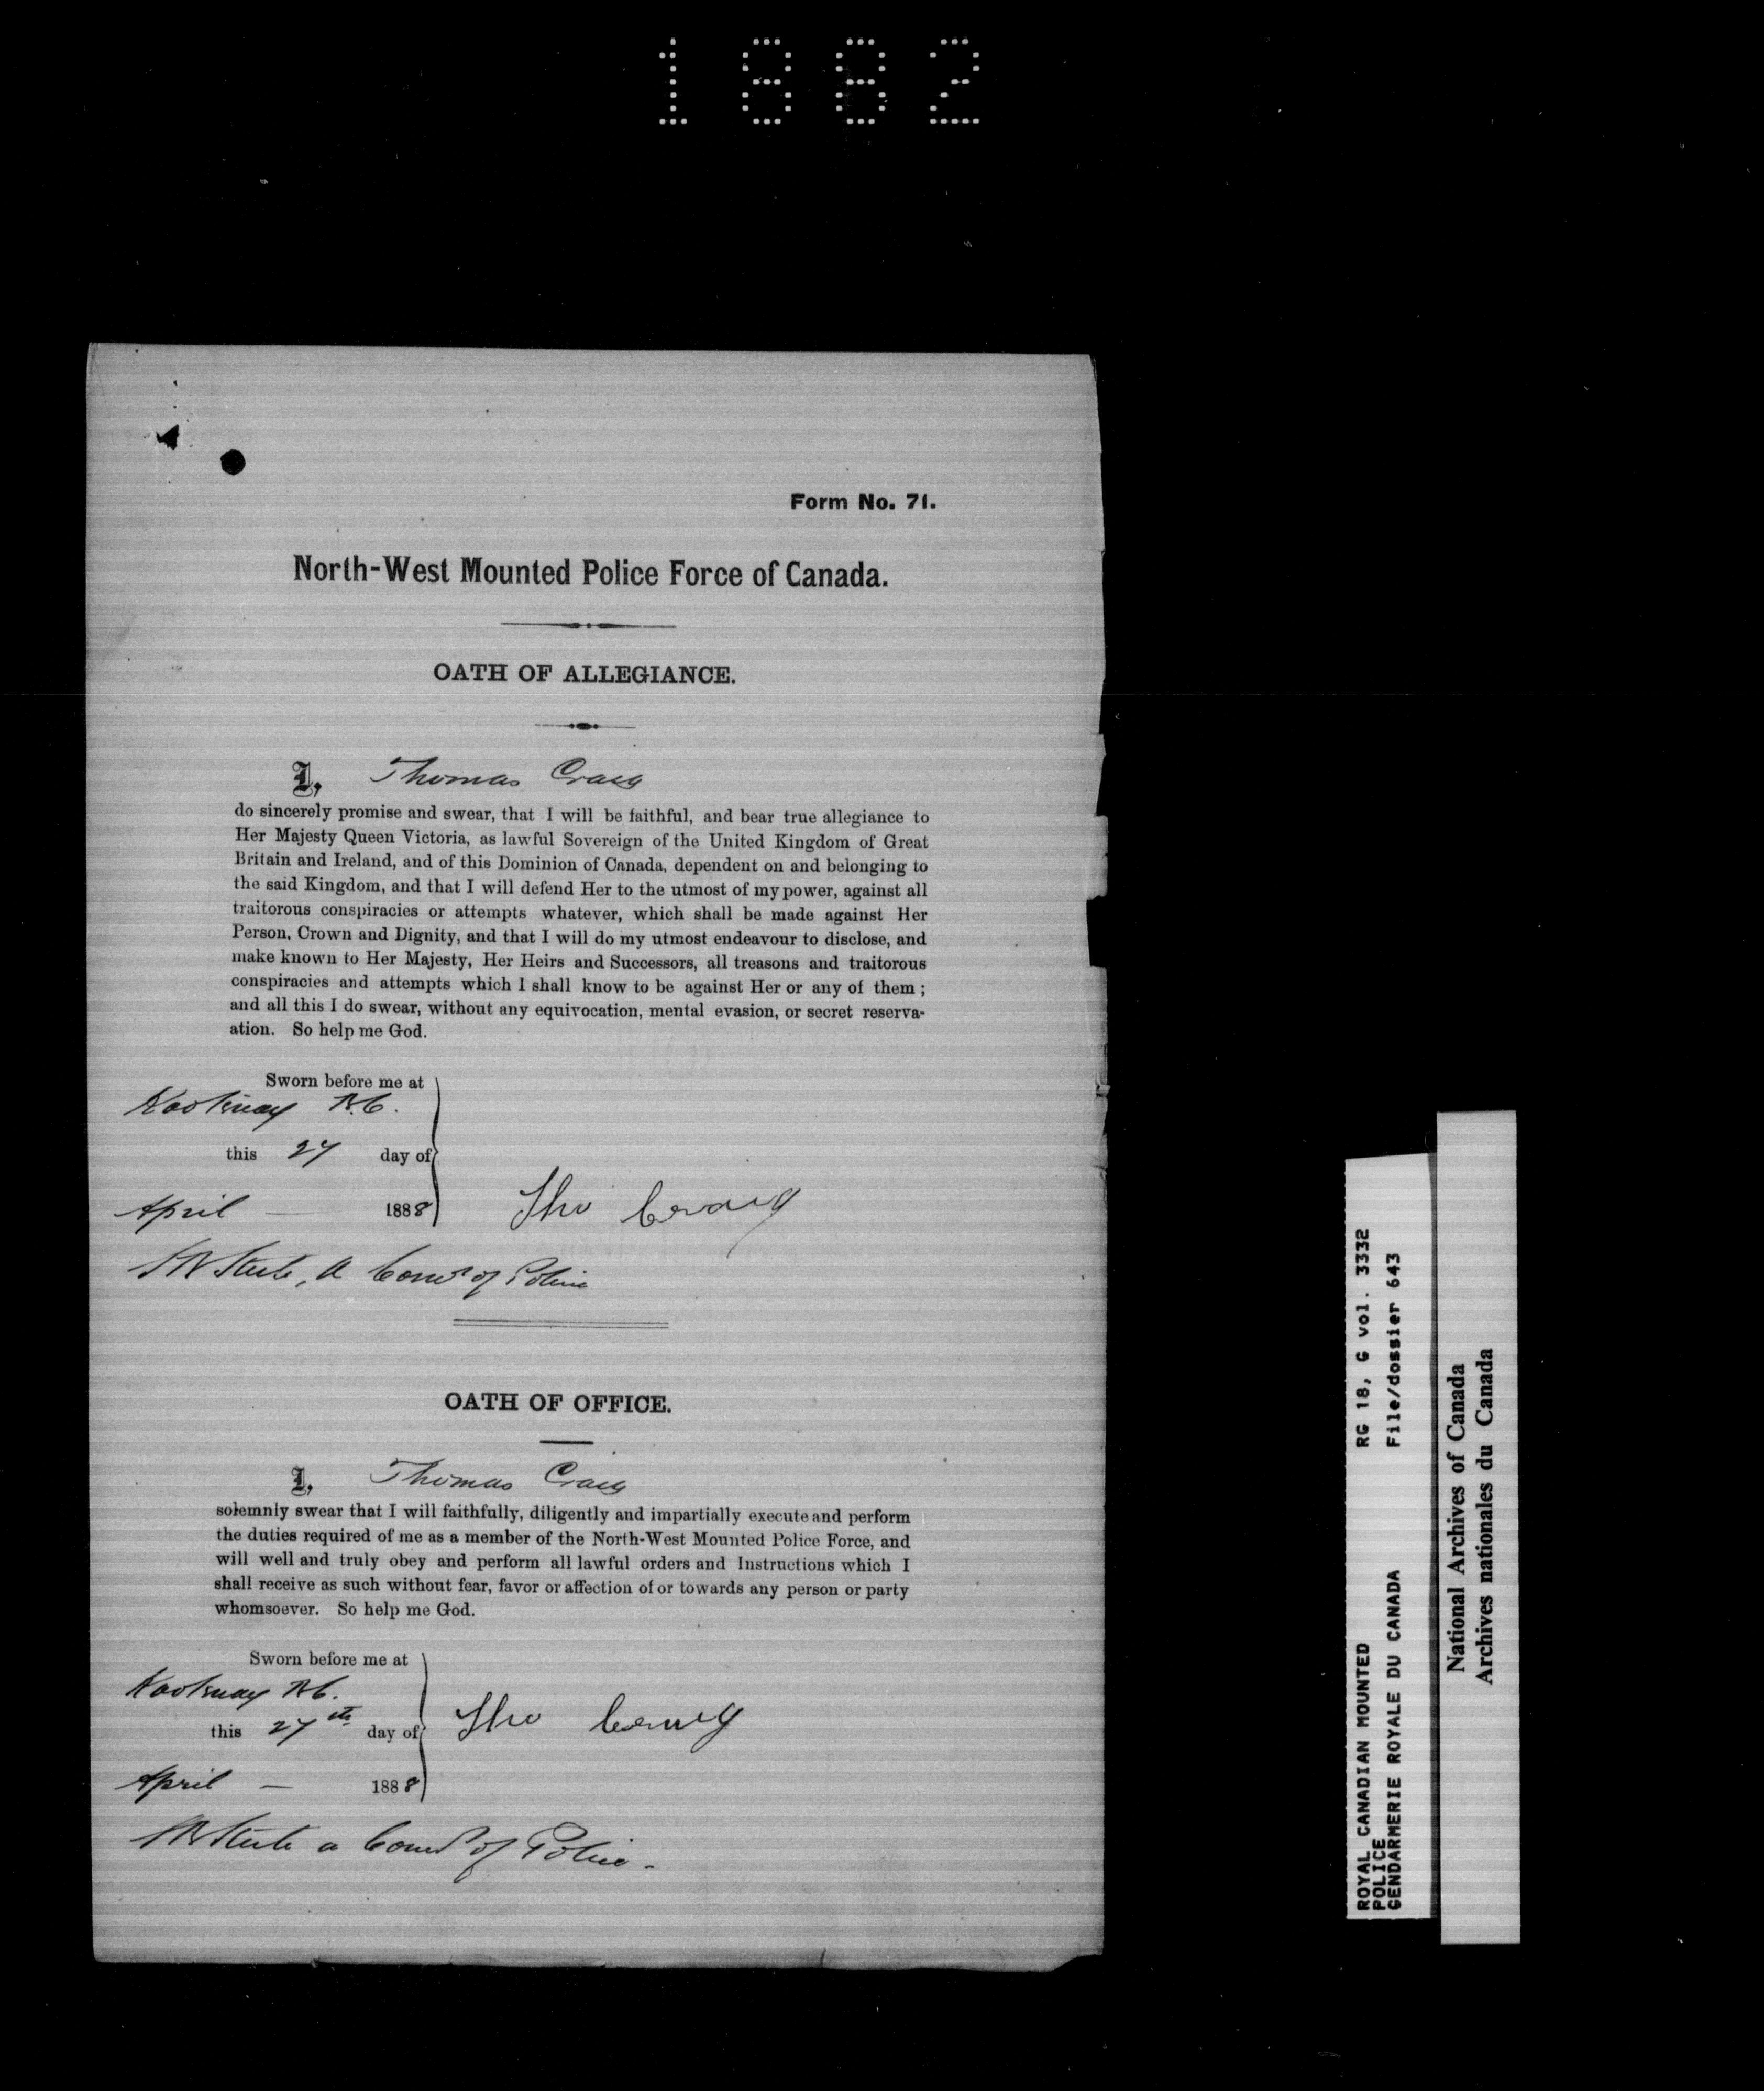 1882
Form No. 71.
North-West Mounted Police Force of Canada.
OATH OF ALLEGIANCE.
I, Thomas Craig
do sincerely promise and swear, that I will be faithful, and bear true allegiance to
Her Majesty Queen Victoria, as lawful Sovereign of the United Kingdom of Great
Britain and Ireland, and of this Dominion of Canada, dependent on and belonging to
the said Kingdom, and that I will defend Her to the utmost of my power, against all
traitorous conspiracies or attempts whatever, which shall be made against Her
Person, Crown and Dignity, and that I will do my utmost endeavour to disclose, and
make known to Her Majesty, Her Heirs and Successors, all treasons and traitorous
conspiracies and attempts which I shall know to be against Her or any of them ;
and all this I do swear, without any equivocation, mental evasion, or secret reserva-
ation. So help me God.
Sworn before me at
Kootenay B.C.
this 27 day of
April 1888
Tho Craig
S B Steele, A Comr of Police
OATH OF OFFICE.
I, Thomas Craig
solemnly swear that I will faithfully, diligently and impartially execute and perform
the duties required of me as a member of the North-West Mounted Police Force, and
will well and truly obey and perform all lawful orders and Instructions which I
shall receive as such without fear, favor or affection of or towards any person or party
whomsoever. So help me God.
Sworn before me at
Kootenay B.C.
this 27th day of
April — 1888
Tho Craig
S B Steele a Comr of Police.
ROYAL CANADIAN MOUNTED RG 18, G vol. 3332
POLICE
GENDARMERIE ROYALE DU CANADA File/dossier 643
National Archives of Canada
Archives nationales du Canada